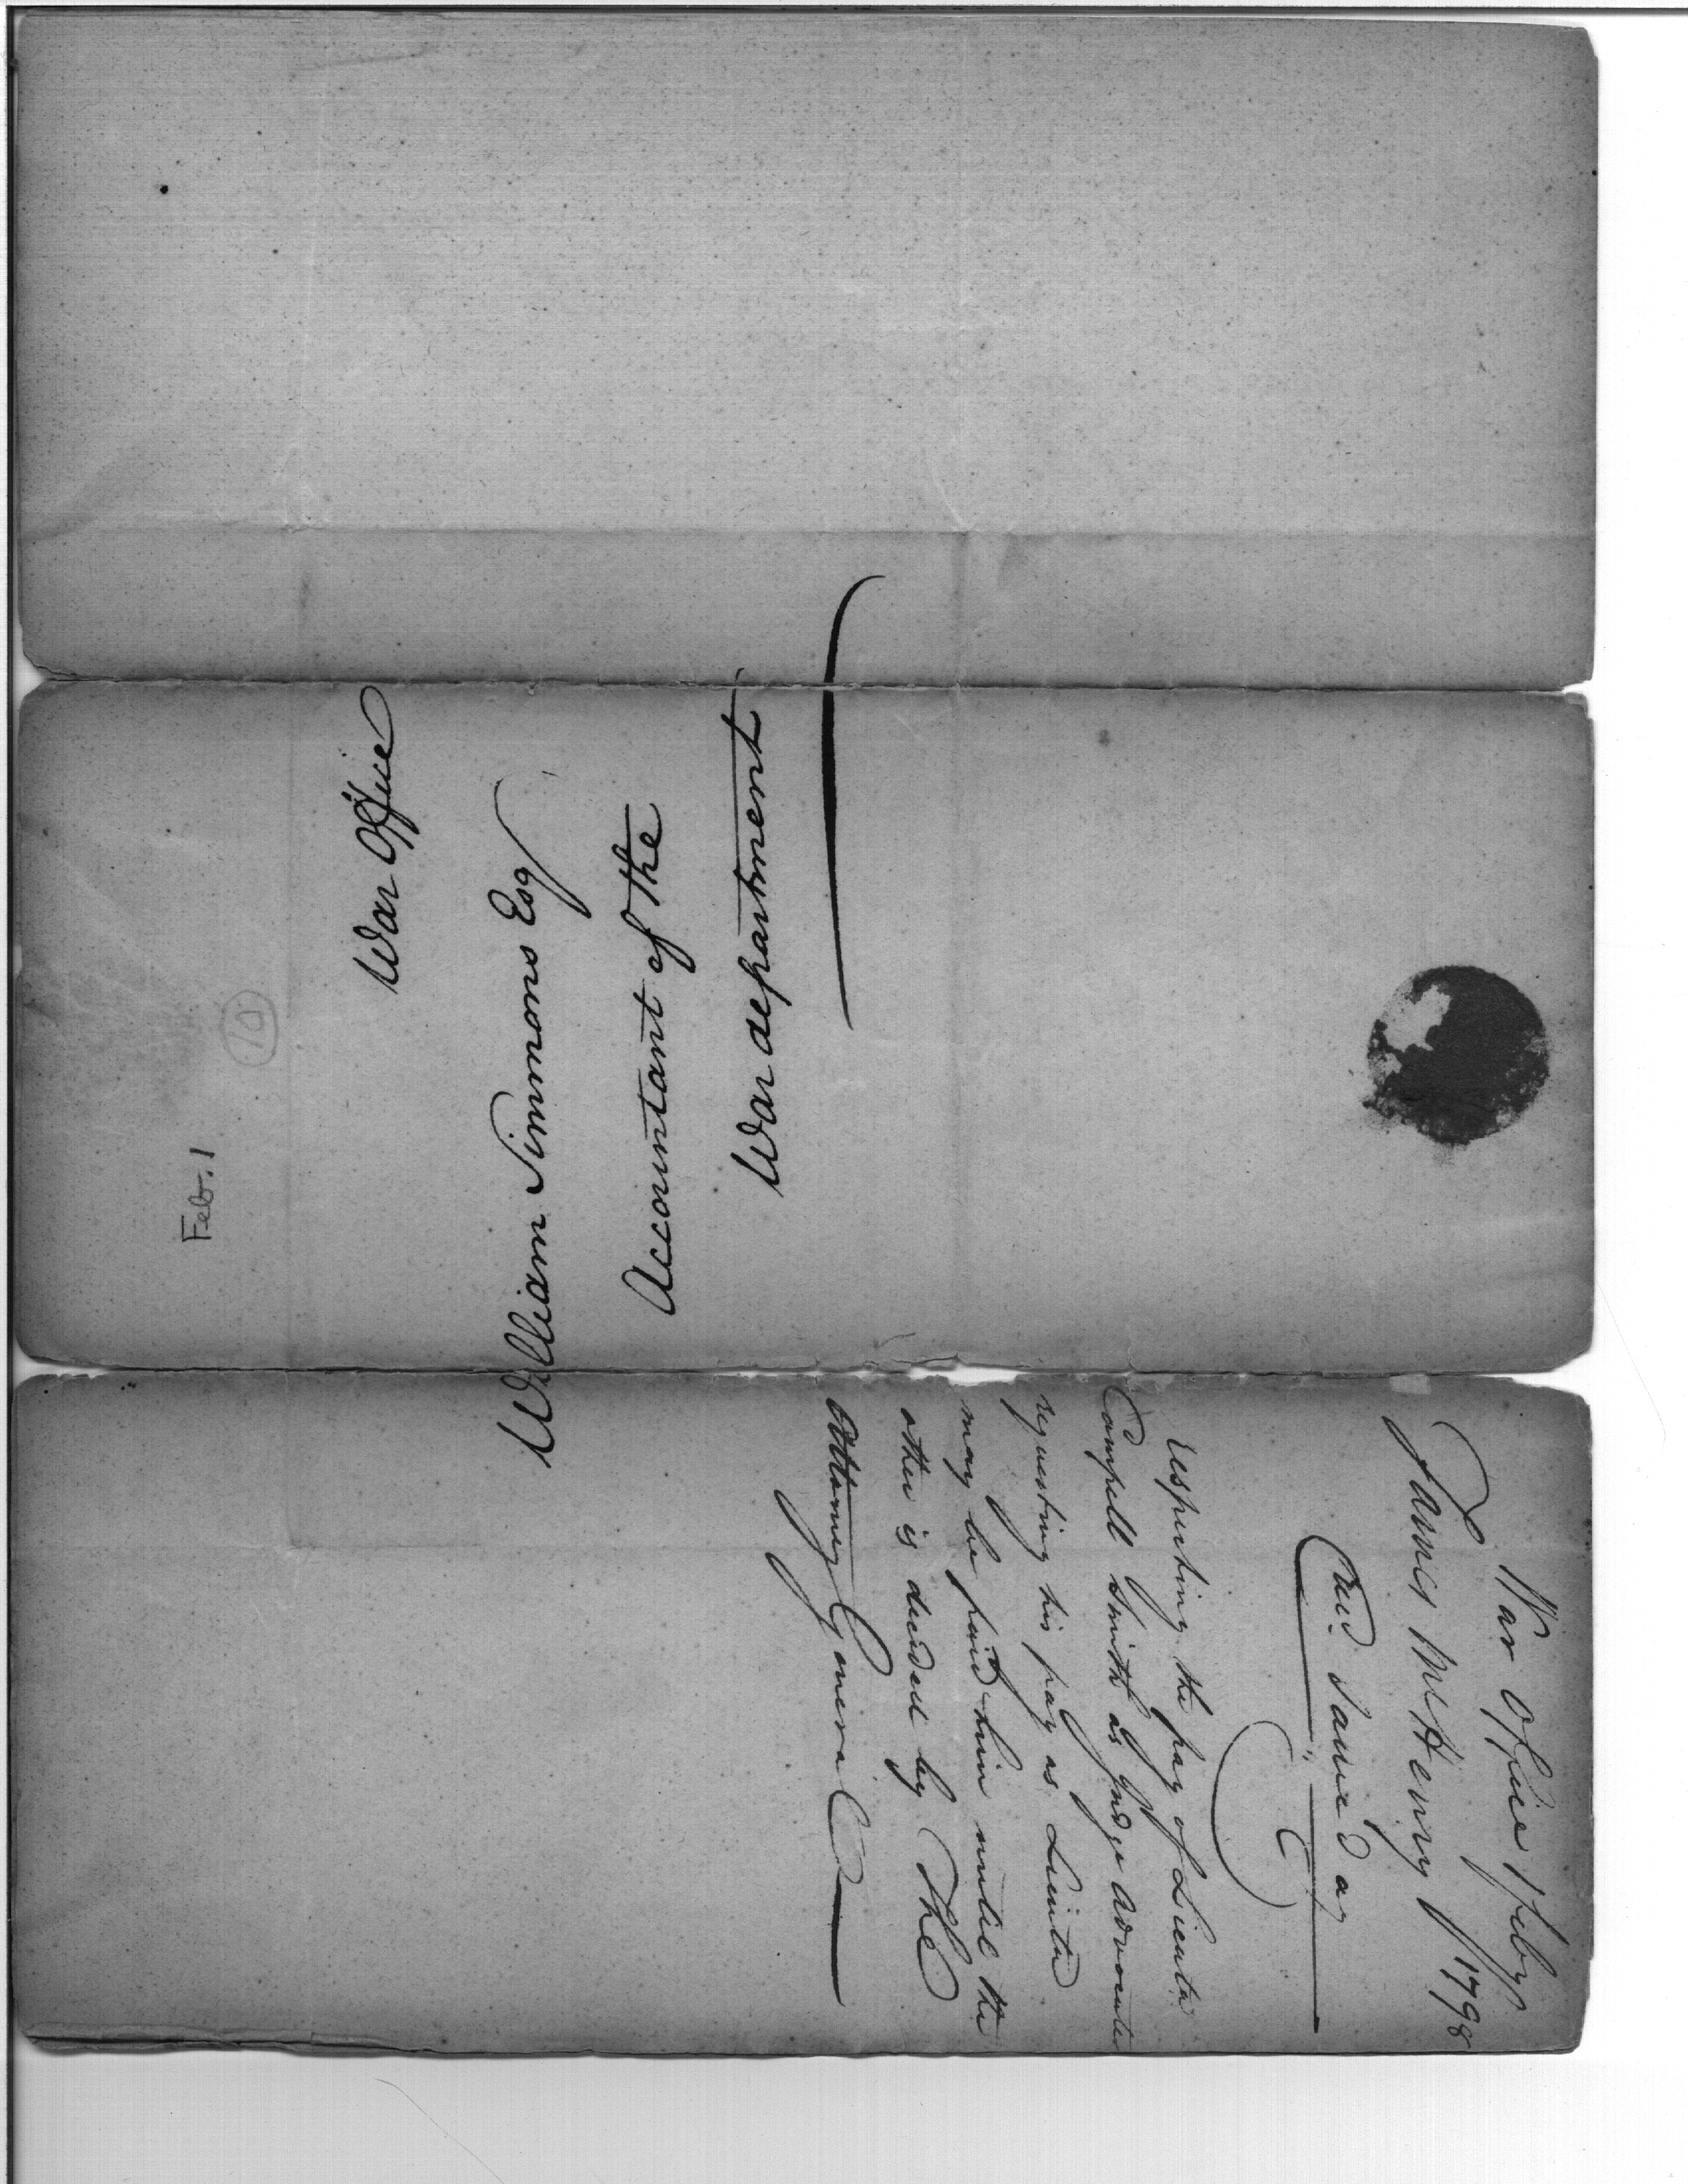 Feb. 1
10
War Office
William Simmons Esq
Accountant of the
War department
War Office 1 feby
James McHenry 1798
Recd. Same day
respecting the pay of Lieuta
Campell Smith as Judge Advocate
requesting his pay as Lieuta
may be paid him until the
other is decided by The
Attorney General